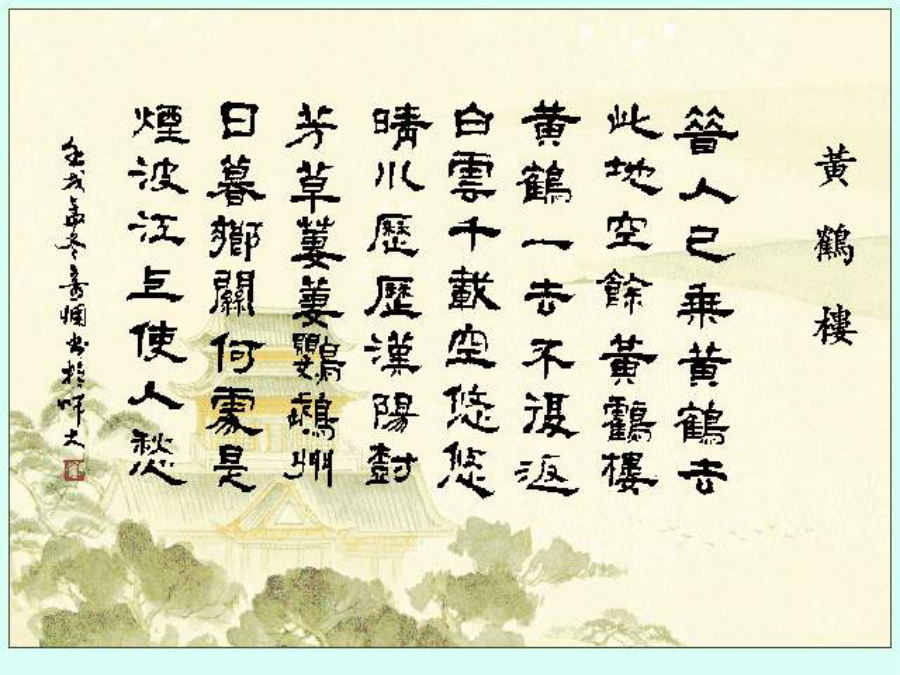 黃鶴樓
昔人已乘黃鶴去
此地空餘黃鶴樓
黃鶴一去不復返
白雲千載空悠悠
晴川歷歷漢陽樹
芳草萋萋鸚鵡州
日暮鄉關何處是
煙波江上使人愁
壬戌年冬書於